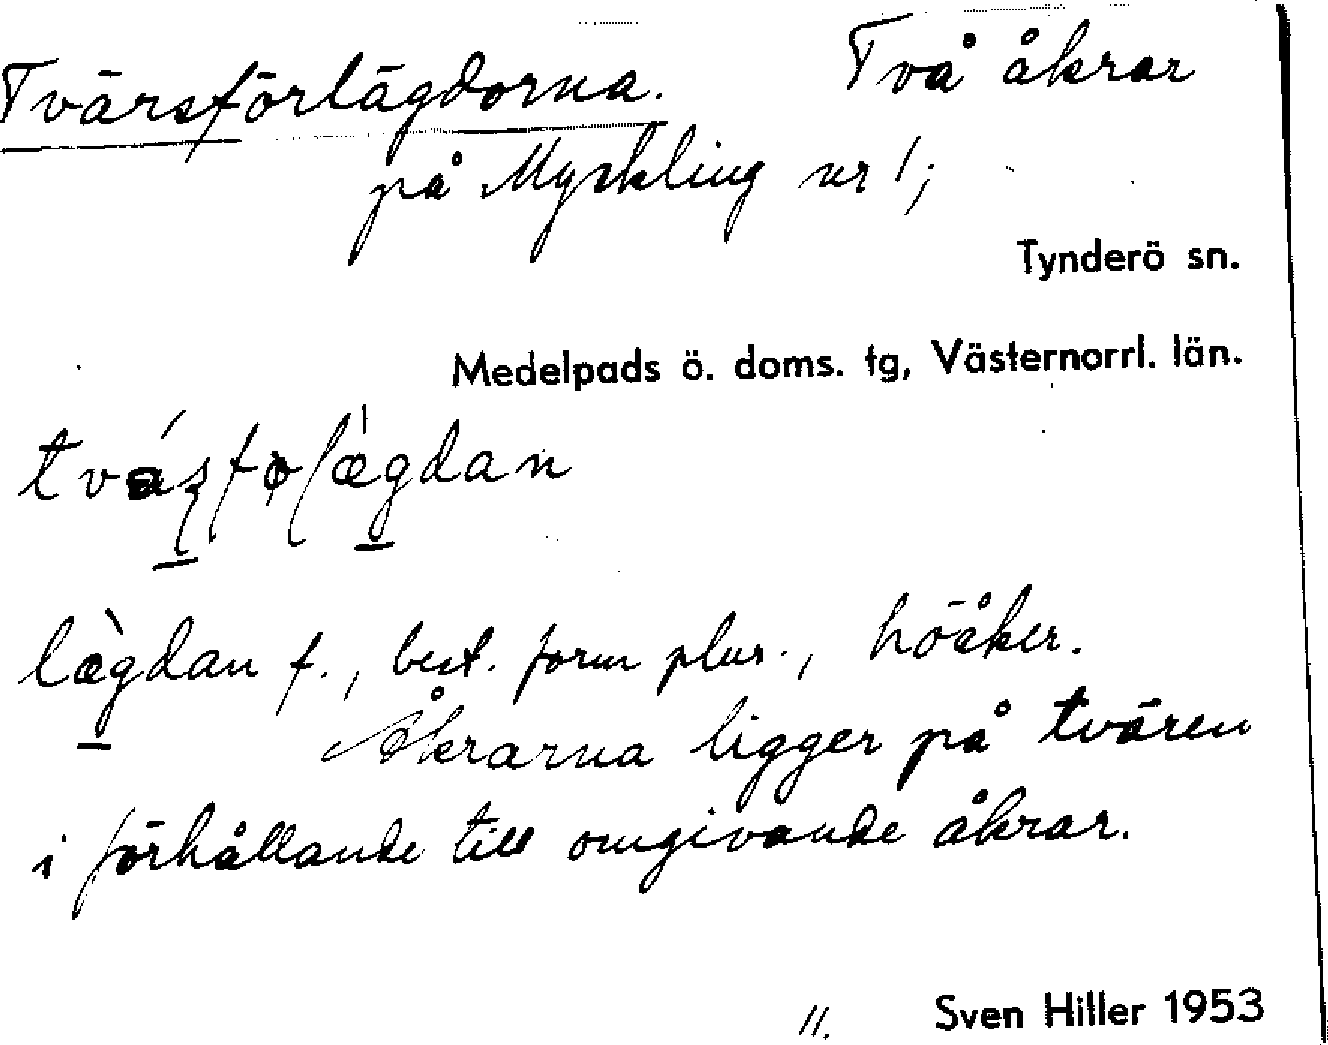 Tvärsförlägdorna. Två åkrar
på Myckling nr 1;
Tynderö sn.
Medelpads ö. doms. tg, Västernorrl. län.
lægdan f., best. form plur., höåker.
Åkrarna ligger på tvären
i förhållande till omgivande åkrar.
11. Sven Hiller 1953